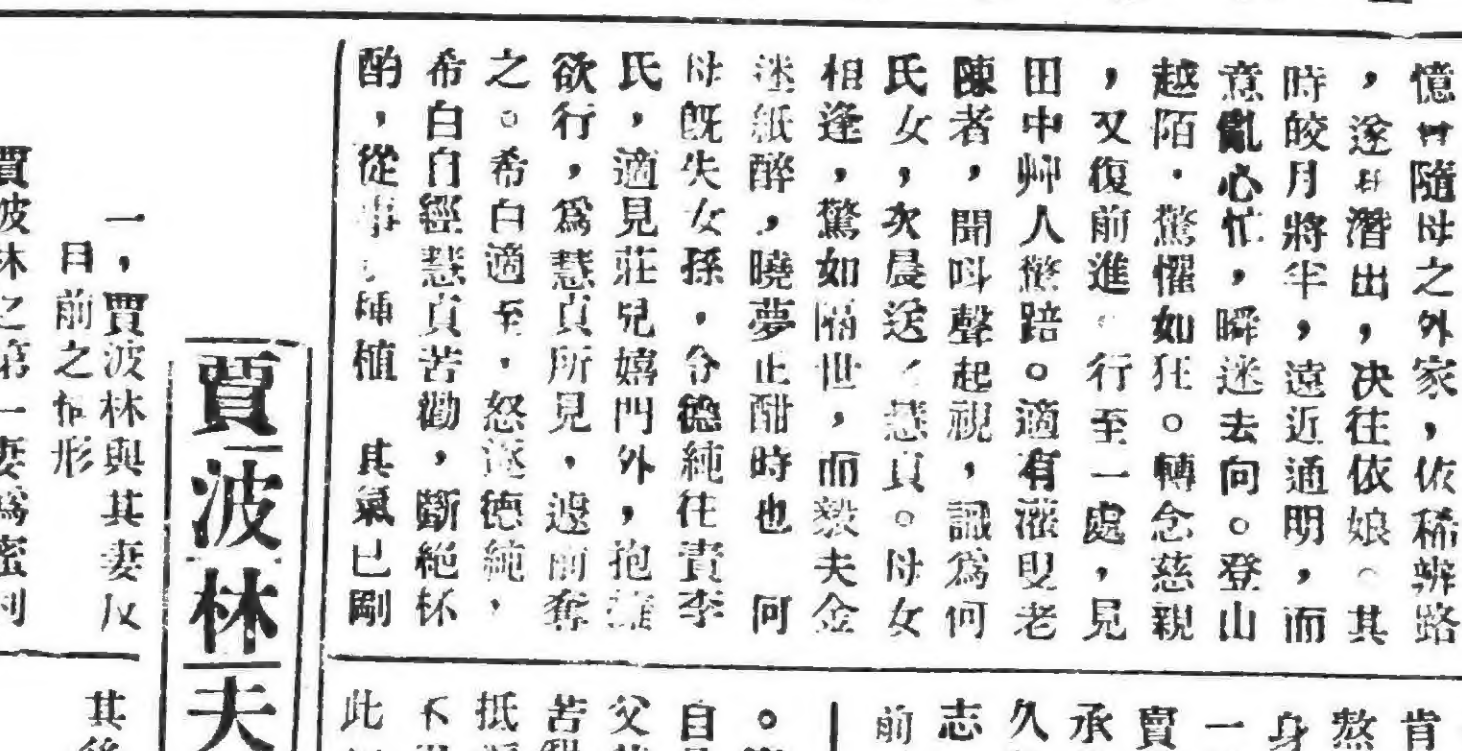 憶昔隨母之外家，依稀辨路
，遂潛出，决往依娘。其
時皎月將半，遠近通明，而
意亂心忙，瞬迷去向。登山
越陌，驚懼如狂。轉念慈親
，又復前進。行至一處，見
田中艸人驚踣。適有灌叟老
陳者，聞呌聲起視，識爲何
氏女，次晨送慧貞。母女
相逢，驚如隔世，而毅夫金
迷紙醉，曉夢正酣時也　何
母既失女孫，令德純往責李
氏，適見莊兒嬉門外，抱
欲行，爲慧貞所見，遽前奪
之。希白適至，怒逐德純，
希白自經慧貞苦勸，斷絶杯
酌，從事種植　其氣已剛
賈波林夫
一，賈波林與其妻及
目前之情形
賈波林之第一妻爲蜜列
肯
熬
身
一
賣
承
久
志
前
。
自
父
苦
抵
不
此
其後